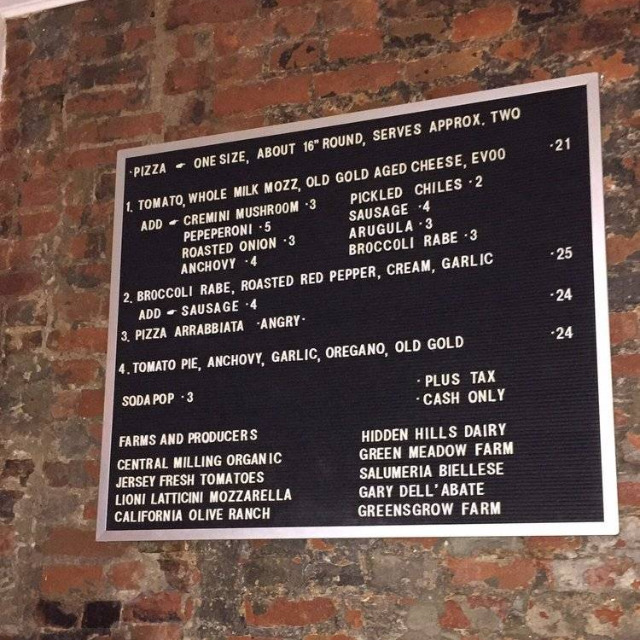 ·PIZZA ☛ ONE SIZE, ABOUT 16" ROUND, SERVES APPROX. TWO
1. TOMATO, WHOLE MILK MOZZ, OLD GOLD AGED CHEESE, EVOO ·21
ADD ☛ CREMINI MUSHROOM ·3 PICKLED CHILES ·2
PEPEPERONI ·5 SAUSAGE ·4
ROASTED ONION ·3 ARUGULA ·3
ANCHOVY ·4 BROCCOLI RABE ·3
2. BROCCOLI RABE, ROASTED RED PEPPER, CREAM, GARLIC ·25
ADD ☛ SAUSAGE ·4
3. PIZZA ARRABBIATA ·ANGRY· ·24
4. TOMATO PIE, ANCHOVY, GARLIC, OREGANO, OLD GOLD ·24
SODA POP ·3
· PLUS TAX
· CASH ONLY
FARMS AND PRODUCERS
CENTRAL MILLING ORGANIC
JERSEY FRESH TOMATOES
LIONI LATTICINI MOZZARELLA
CALIFORNIA OLIVE RANCH
HIDDEN HILLS DAIRY
GREEN MEADOW FARM
SALUMERIA BIELLESE
GARY DELL'ABATE
GREENSGROW FARM